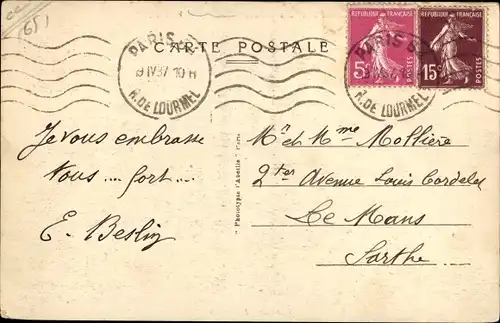 651
CARTE POSTALE
PARIS
9 IV 37 10H
R. DE LOURMEL
REPUBLIQUE FRANÇAISE
5c
POSTES
REPUBLIQUE FRANÇAISE
15c
POSTES
PARIS
R. DE LOURMEL
Je vous embrasse
tous .... fort ....
E. Beslin
Mr et Mme Mollière
2ter Avenue Louis Cordelet
Le Mans
Sarthe
"Phototypie l'Abeille" Paris